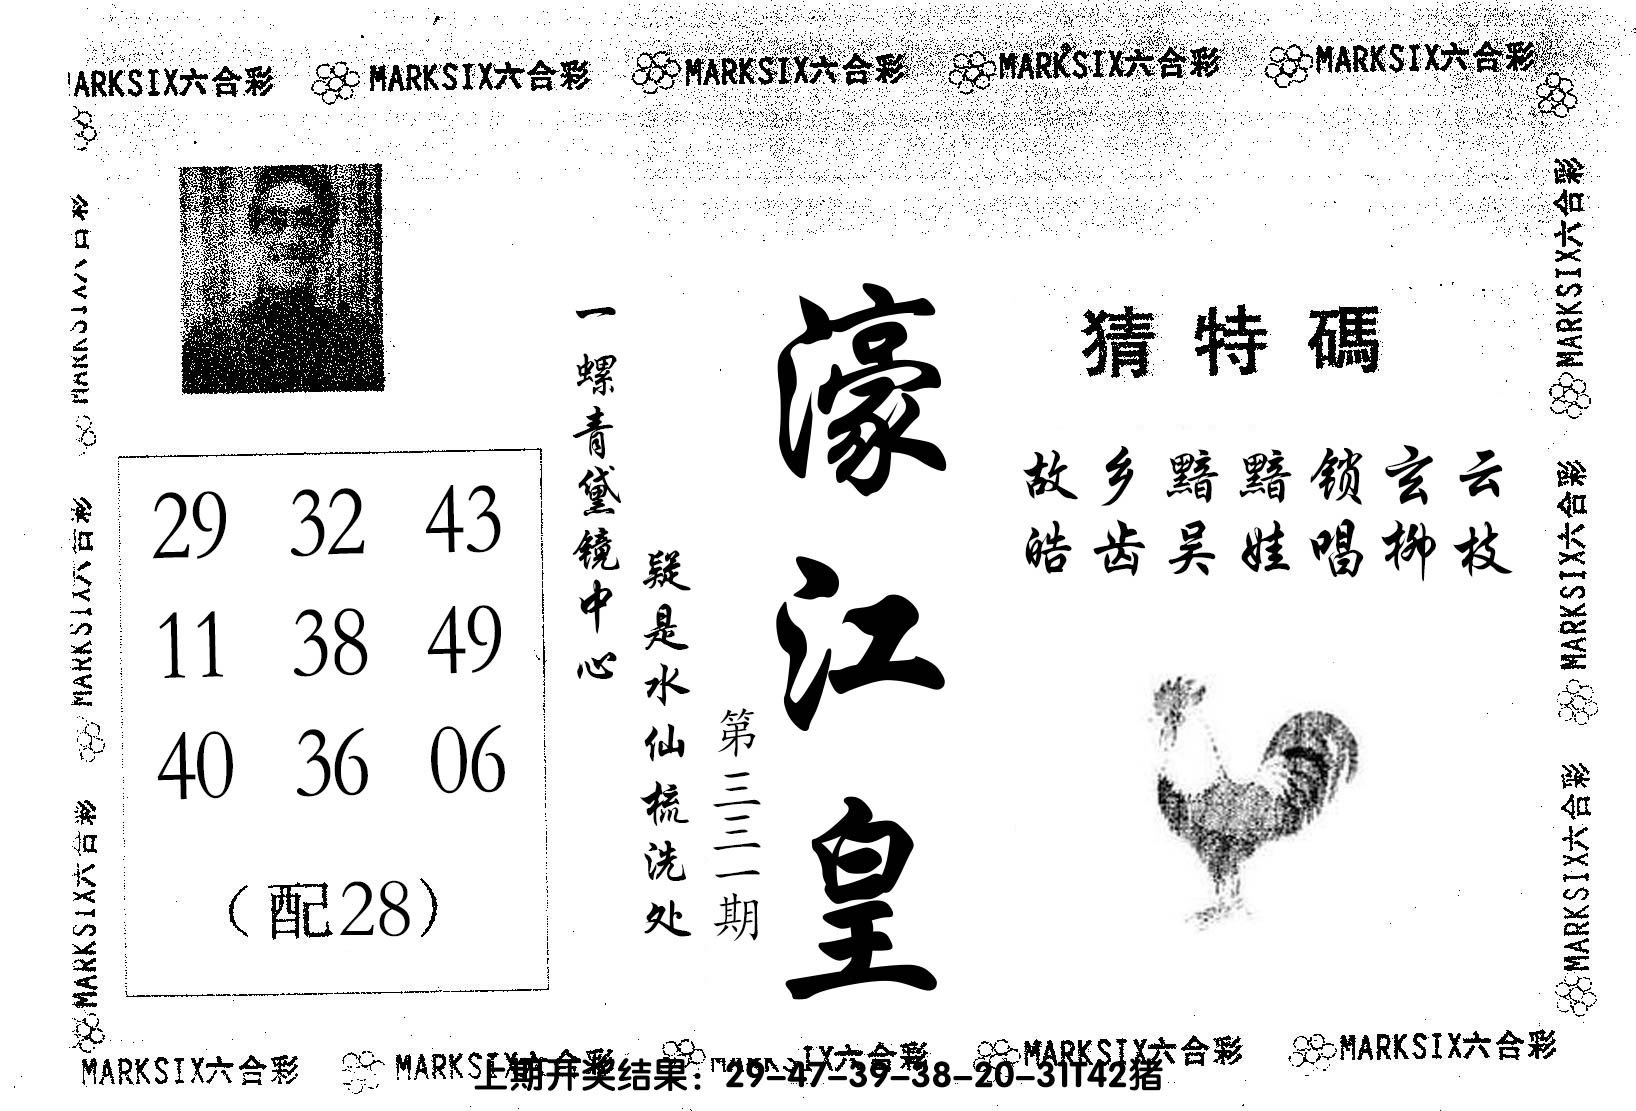 MARKSIX六合彩 MARKSIX六合彩 MARKSIX六合彩 MARKSIX六合彩 MARKSIX六合彩
猜特碼
故乡黯黯锁玄云
皓齿吴娃唱柳枝
濠江皇
第三三一期
一螺青黛镜中心
疑是水仙梳洗处
29 32 43
11 38 49
40 36 06
（配28）
MARKSIX六合彩
MARKSIX六合彩
MARKSIX六合彩
MARKSIX六合彩
MARKSIX六合彩
MARKSIX六合彩
MARKSIX六合彩 MARKSIX六合彩 MARKSIX六合彩 MARKSIX六合彩
上期开奖结果：29-47-39-38-20-31T42猪